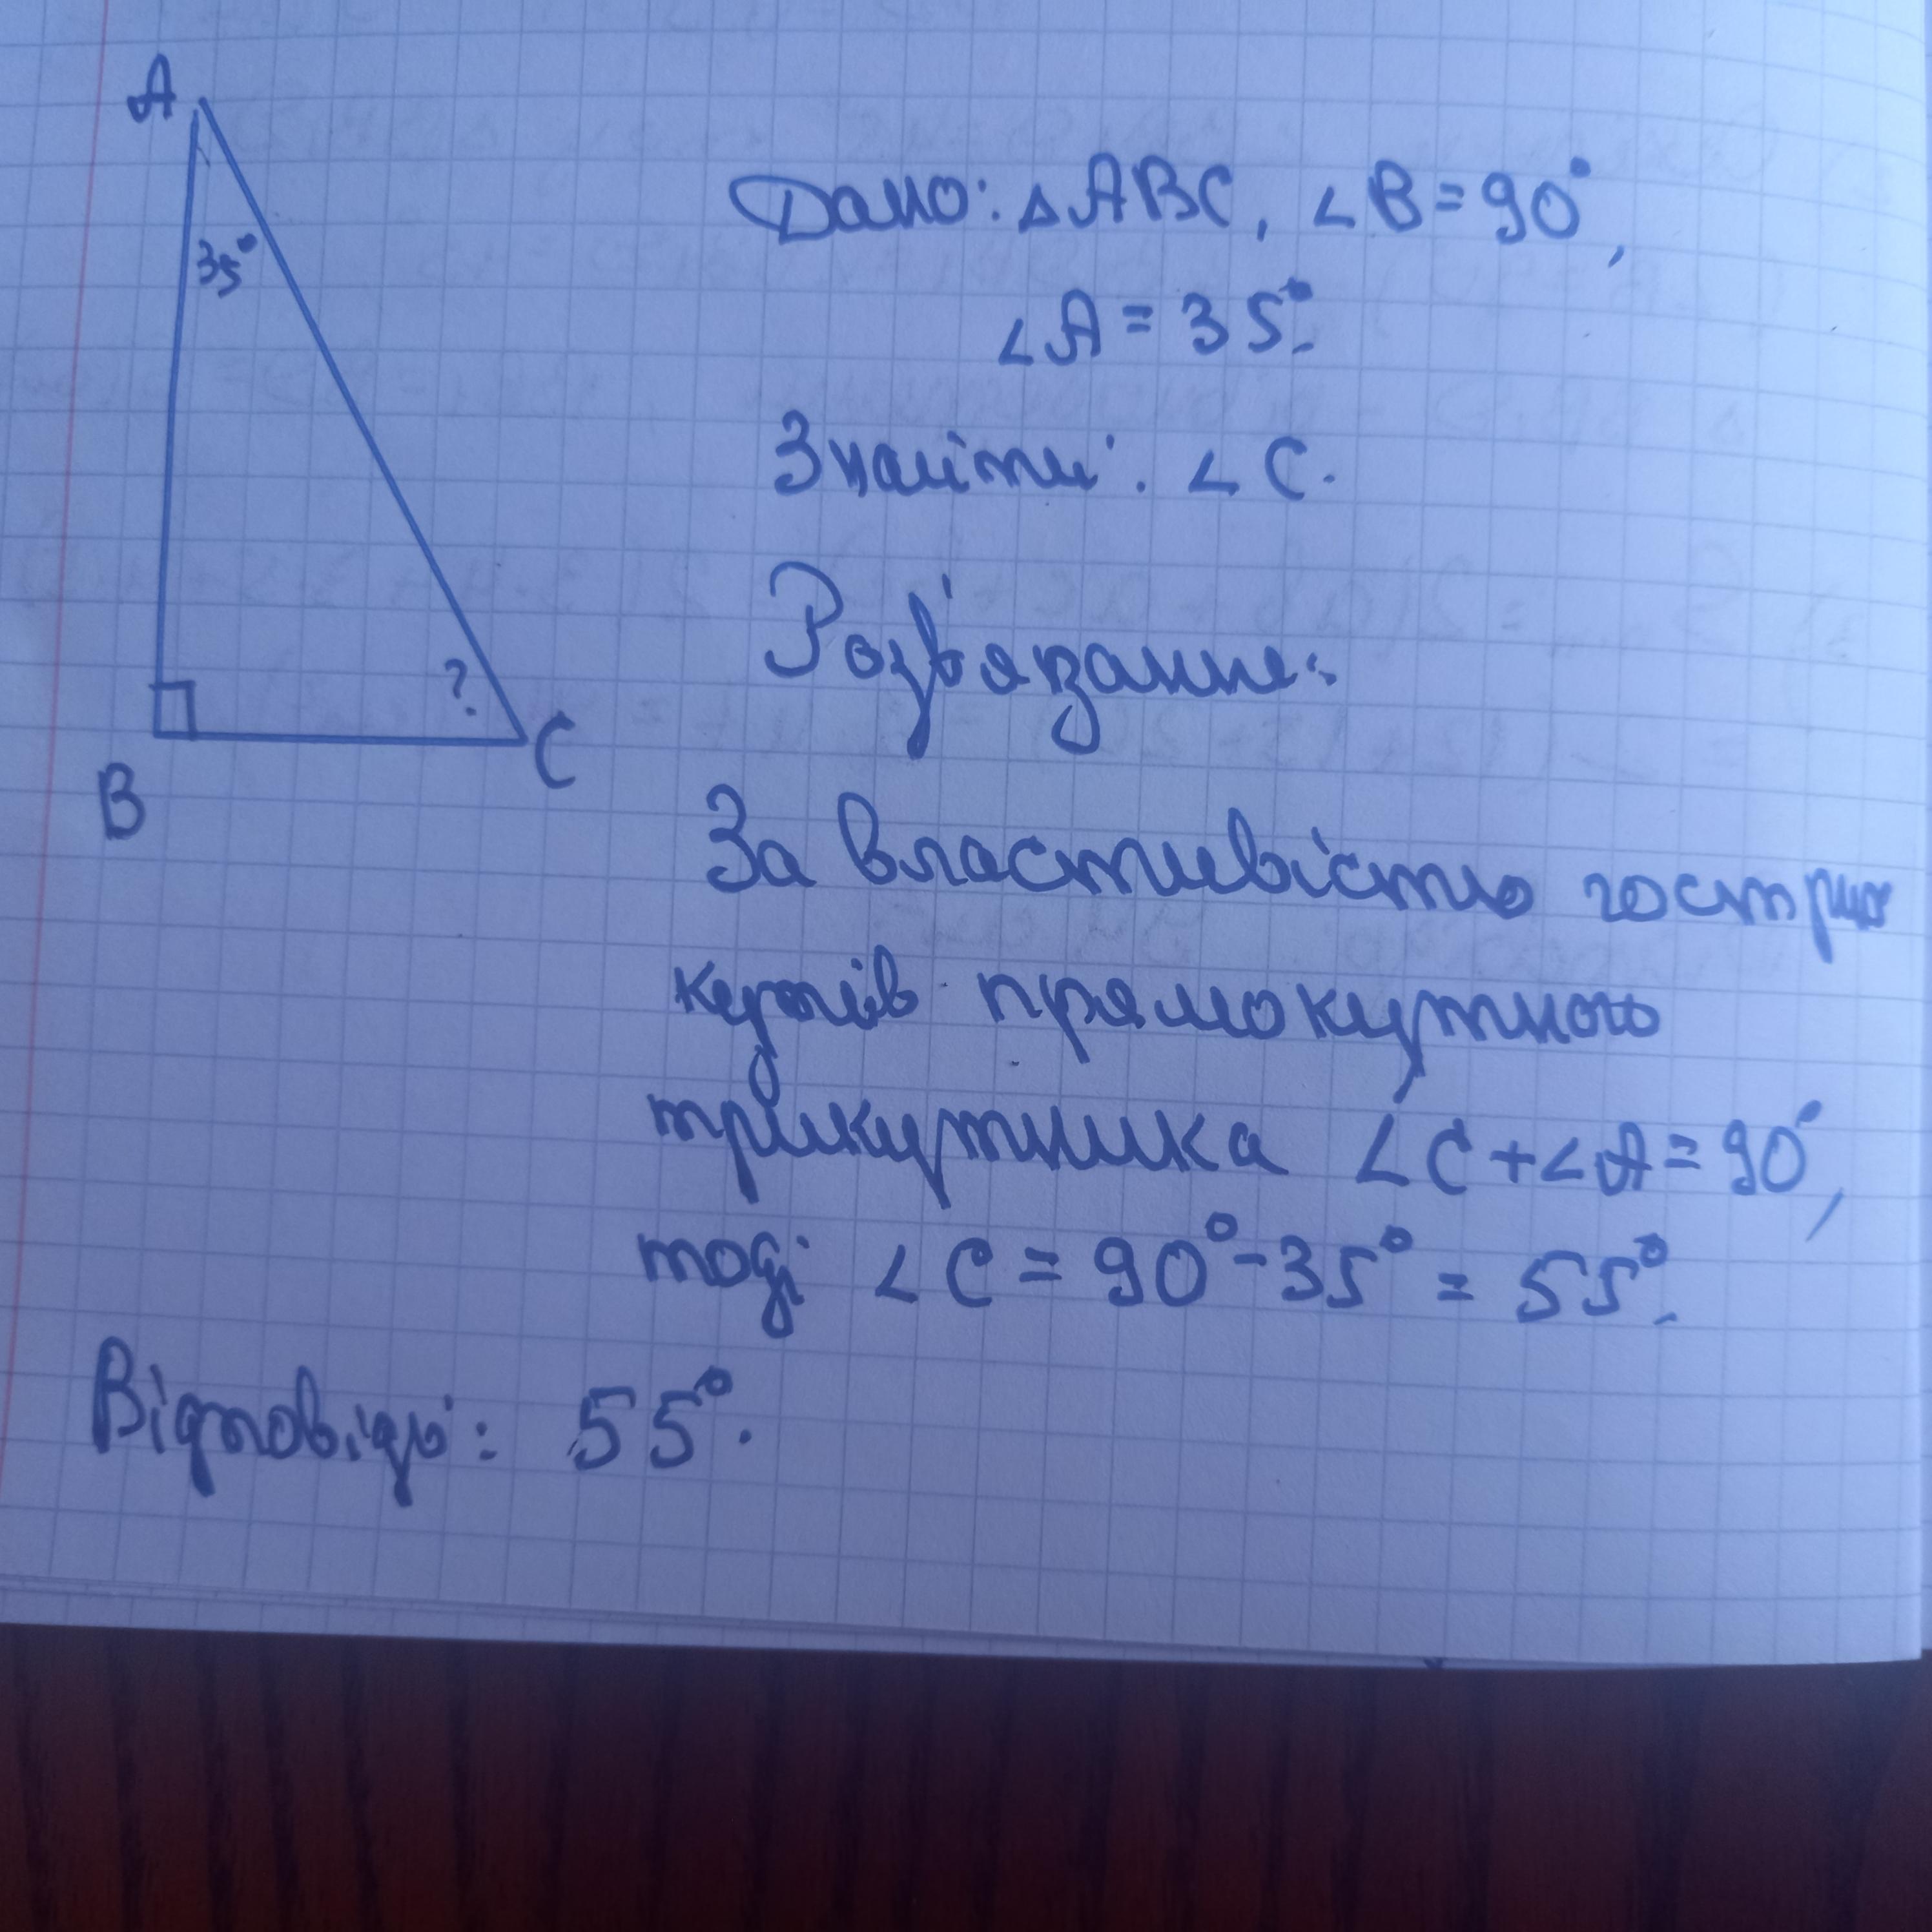 A
35°
B
?
C
Дано: △ABC, ∠B=90°,
∠A = 35°.
Знайти: ∠C.
Розв'язання:
За властивістю гострих
кутів прямокутного
трикутника ∠C+∠A=90°,
тоді ∠C = 90°-35° = 55°.
Відповідь: 55°.